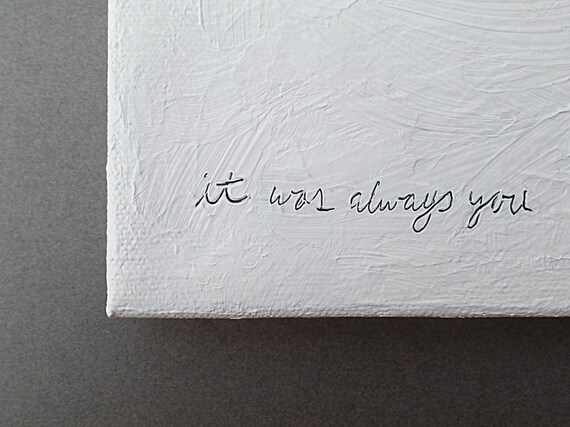 it was always you